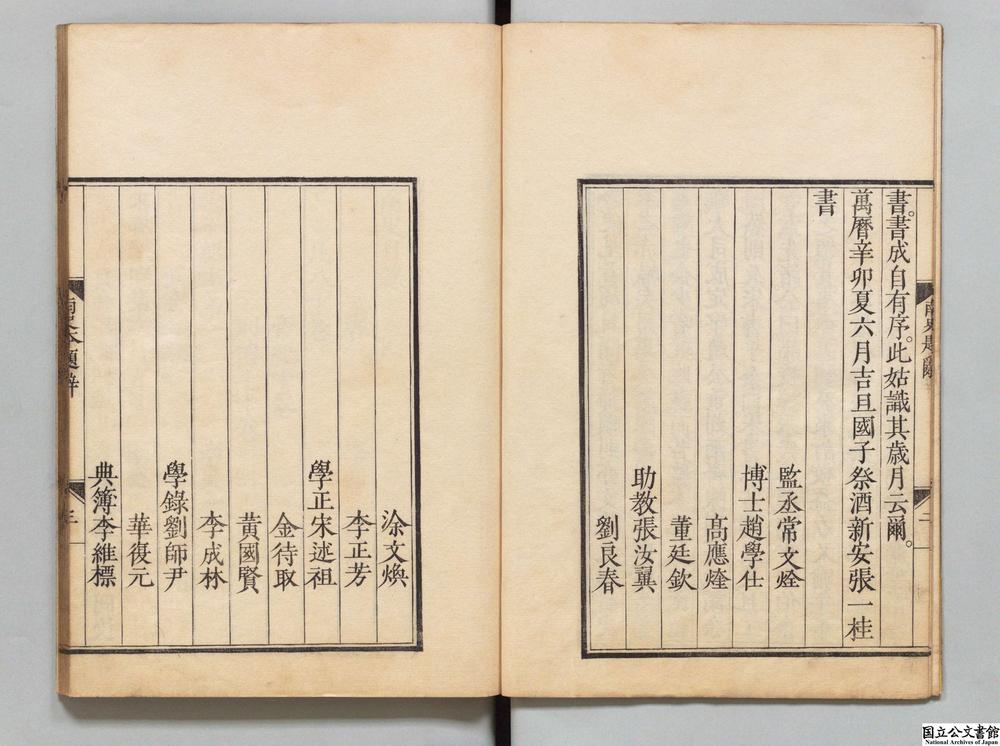 書。書成自有序。此姑識其歳月云爾。
萬曆辛卯夏六月吉旦國子祭酒新安張一桂
書
監丞常文烇
博士趙學仕
高應𤏪
董廷欽
助教張汝翼
劉良春
二
涂文煥
李正芳
學正宋述祖
金待取
黃國賢
李成林
學錄劉師尹
華復元
典簿李維標
題辭
三
国立公文書館
National Archives of Japan